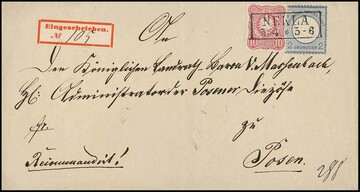 Eingeschrieben.
№ 105
NEKLA
5-6
10
An
Den Königlichen Landrath Herrn v. Massenbach,
Administrator der Posener Diözese
zu
Recommandirt!
Posen.